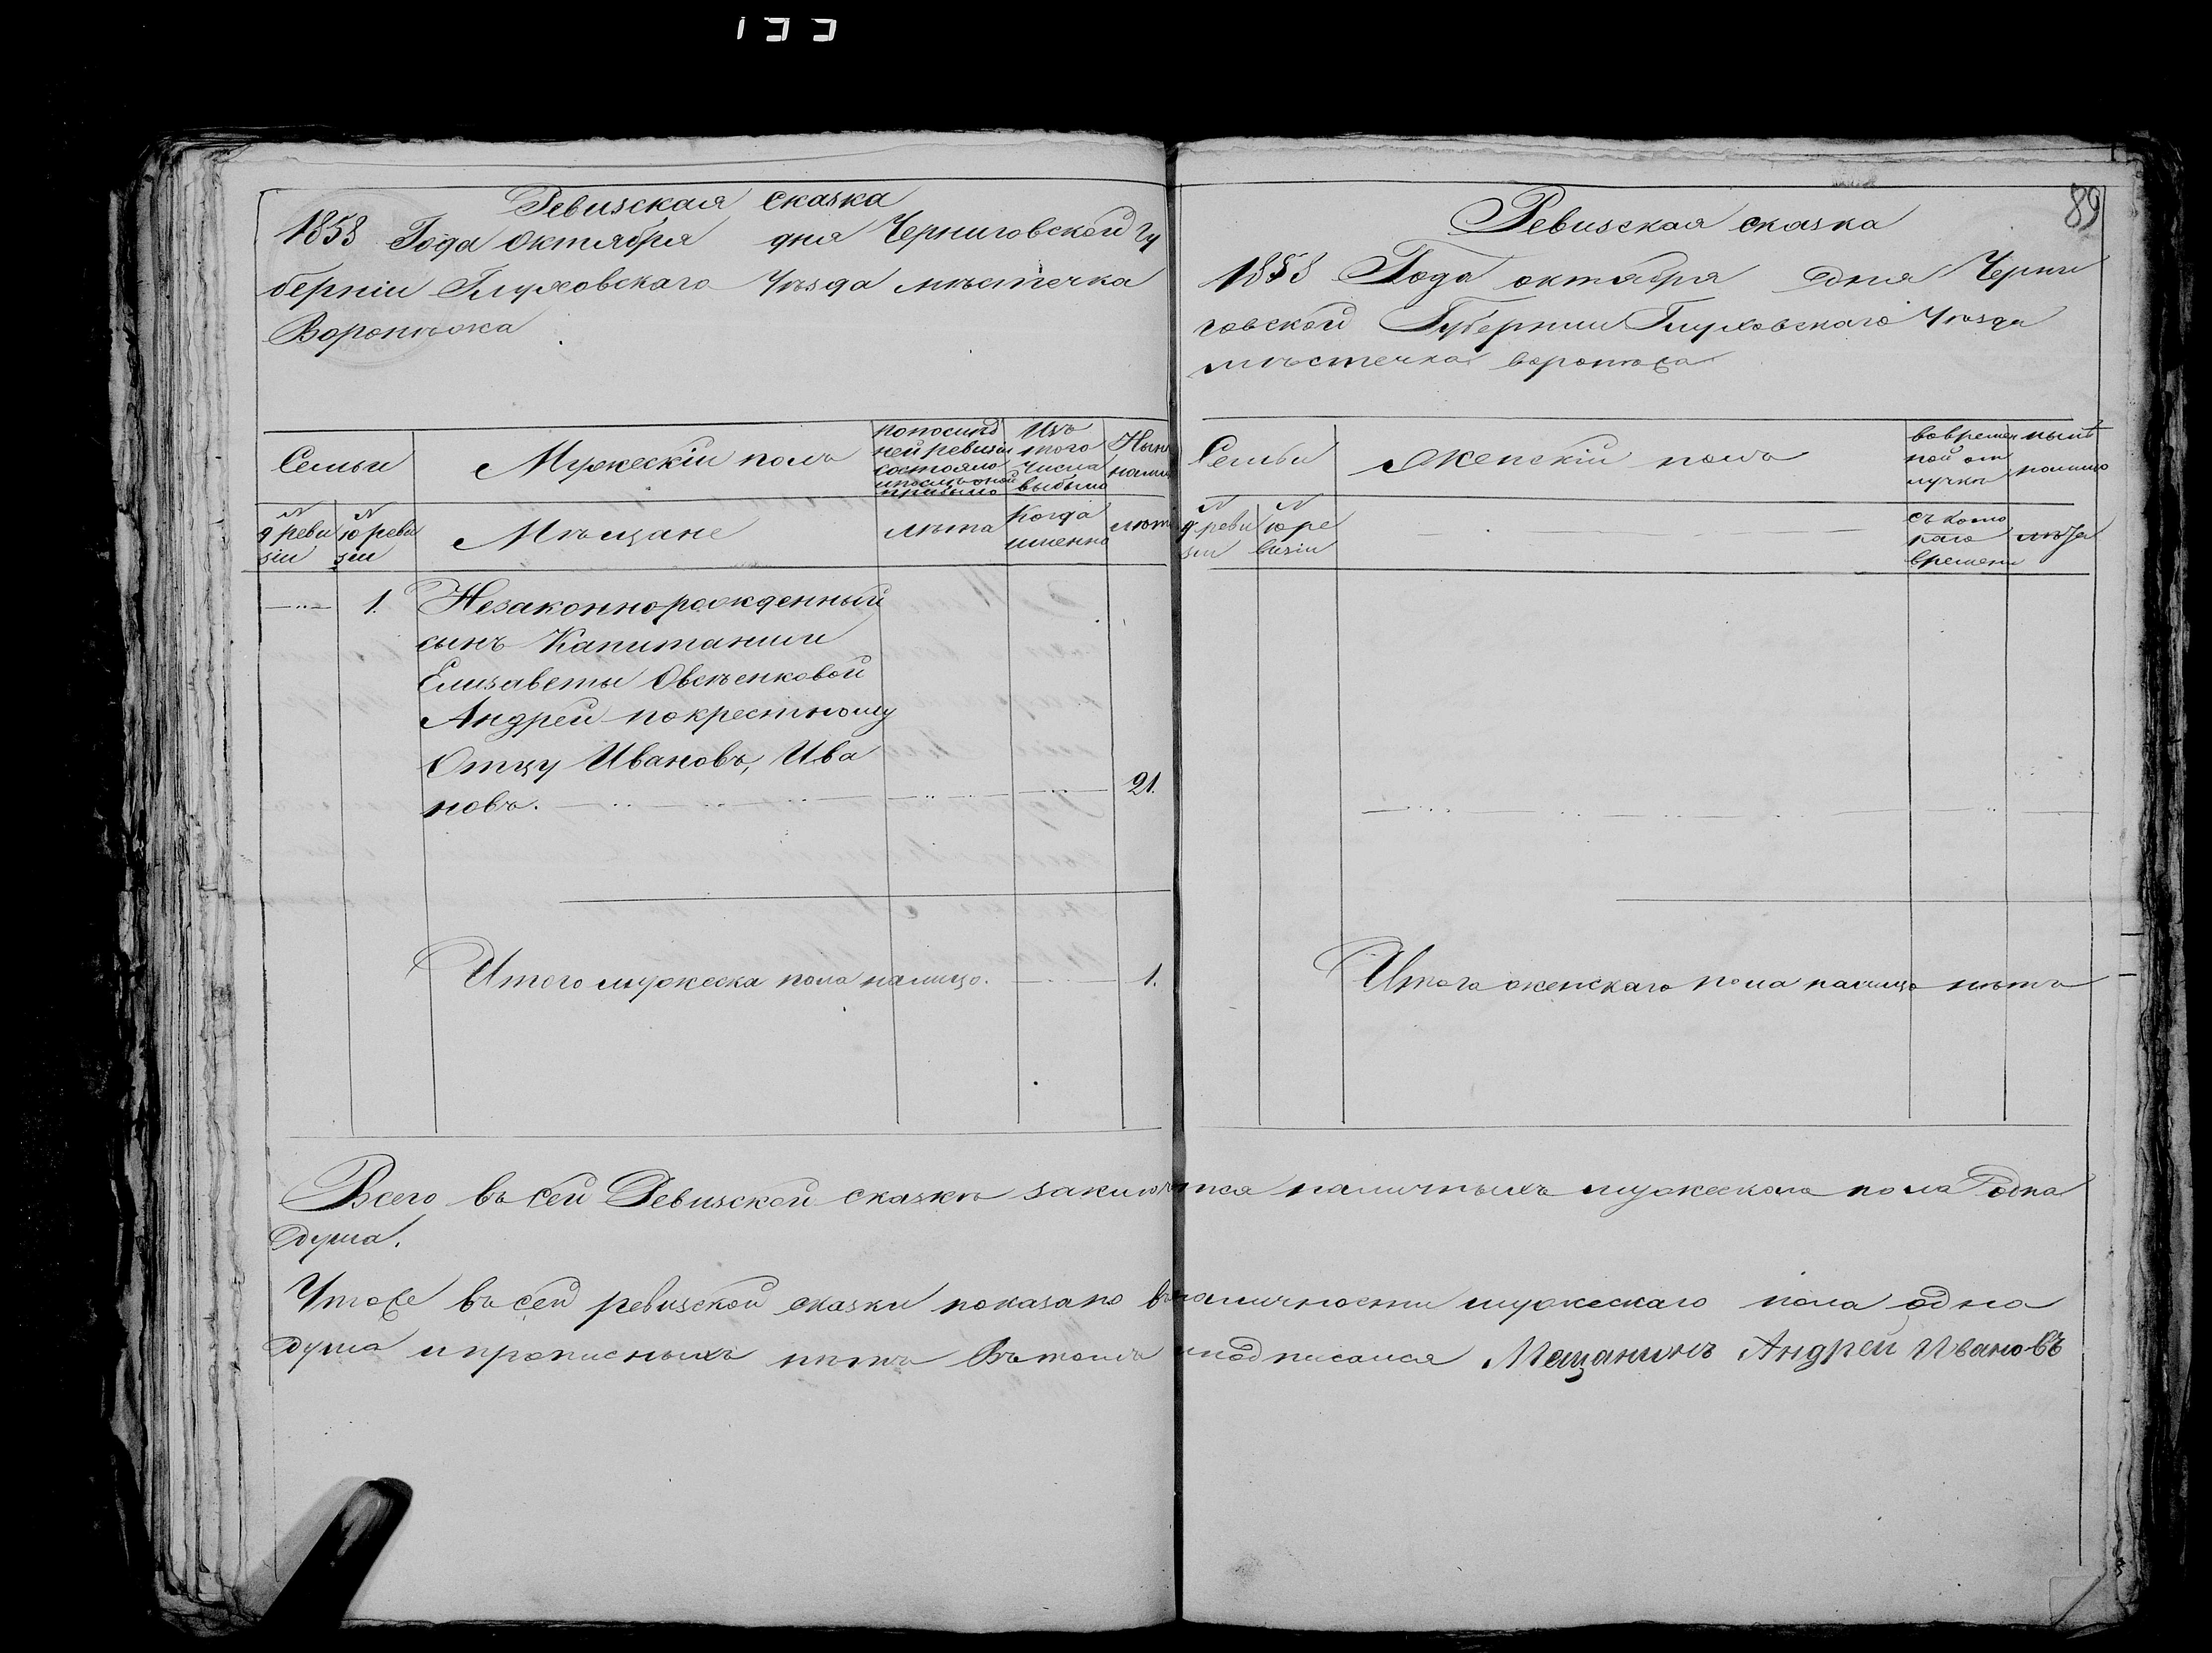 Ревизская сказка
1858 Года Октября дня Черниговской Гу
берніи Глуховскаго Уѣзда мѣстечка
Воронѣжа
Семьи
Мужескій полъ
по послѣд
ней ревизіи
состояло
и послѣ оной
прибыло
Изъ
того
числа
выбыло
Нынѣ
налицо
№
9 реви
зіи
№
10 реви
зіи
Мѣщане
лѣта
Когда
именно
лѣта
1. Незаконнорожденный
сынъ Капитанши
Елизаветы Овсѣенковой
Андрей по крестному
Отцу Ивановъ, Ива
новъ. 21.
Итого мужеска пола налицо. 1.
89
Ревизская сказка
1858 Года октября дня Черни
говской Губерніи Глуховскаго Уѣзда
мѣстечка воронѣжа
Семьи
Женскій полъ
во времен
ной от
лучкѣ
нынѣ
налицо
№
9 реви
зіи
№
10 ре
визіи
съ кото
раго
времени
лѣта
Итого женскаго пола налицо нѣтъ
Всего въ сей Ревизской сказкѣ заключается наличныхъ мужескаго пола одна
душа.
Что же въ сей ревизской сказки показано въ наличности мужескаго пола одна
душа и прописныхъ нѣтъ Въ томъ и подписался Мещанинъ Андрей Ивановъ